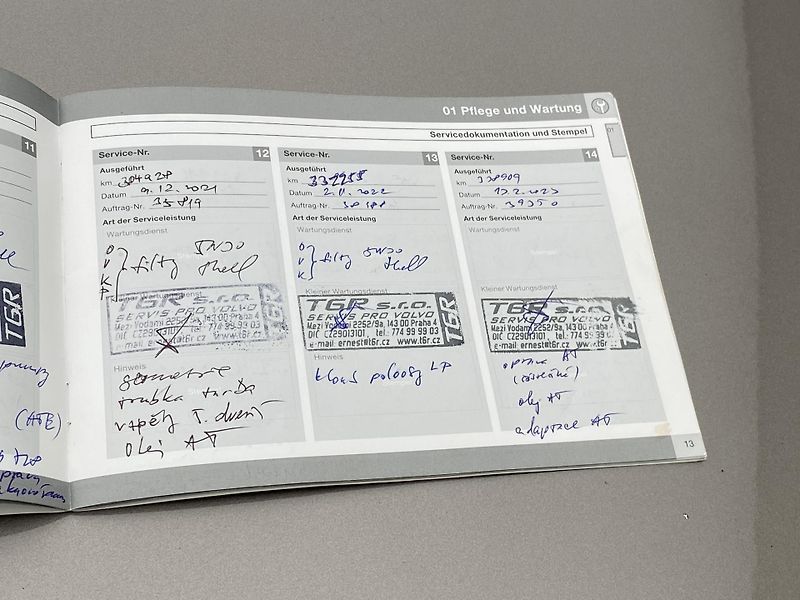 01 Pflege und Wartung
01
Servicedokumentation und Stempel
11
Service-Nr. 12
Ausgeführt
km 304928
Datum 9.12.2021
Auftrag-Nr. 35819
Art der Serviceleistung
Wartungsdienst
O
V
K
P
filtry 5W30
Shell
Kleiner Wartungsdienst
TGR s.r.o.
SERVIS PRO VOLVO
Mezi Vodami 2252/9a, 143 00 Praha 4
DIČ CZ29013101, tel.: 774 99 99 03
e-mail: ernest@t6r.cz www.t6r.cz
TGR
Hinweis
geometrie
trubka turba
vzpěry 5. dveří
olej AT
Service-Nr. 13
Ausgeführt
km 332255
Datum 2.11.2022
Auftrag-Nr.
Art der Serviceleistung
Wartungsdienst
O
V
K
filtry 5W30
Shell
Kleiner Wartungsdienst
TGR s.r.o.
SERVIS PRO VOLVO
Mezi Vodami 2252/9a, 143 00 Praha 4
DIČ CZ29013101, tel.: 774 99 99 03
e-mail: ernest@t6r.cz www.t6r.cz
TGR
Hinweis
kloub poloosy LP
Service-Nr. 14
Ausgeführt
km 338909
Datum 13.2.2023
Auftrag-Nr. 39350
Art der Serviceleistung
Wartungsdienst
Kleiner Wartungsdienst
TGR s.r.o.
SERVIS PRO VOLVO
Mezi Vodami 2252/9a, 143 00 Praha 4
DIČ CZ29013101, tel.: 774 99 99 03
e-mail: ernest@t6r.cz www.t6r.cz
TGR
oprava AT
olej AT
adaptace AT
13
TGR